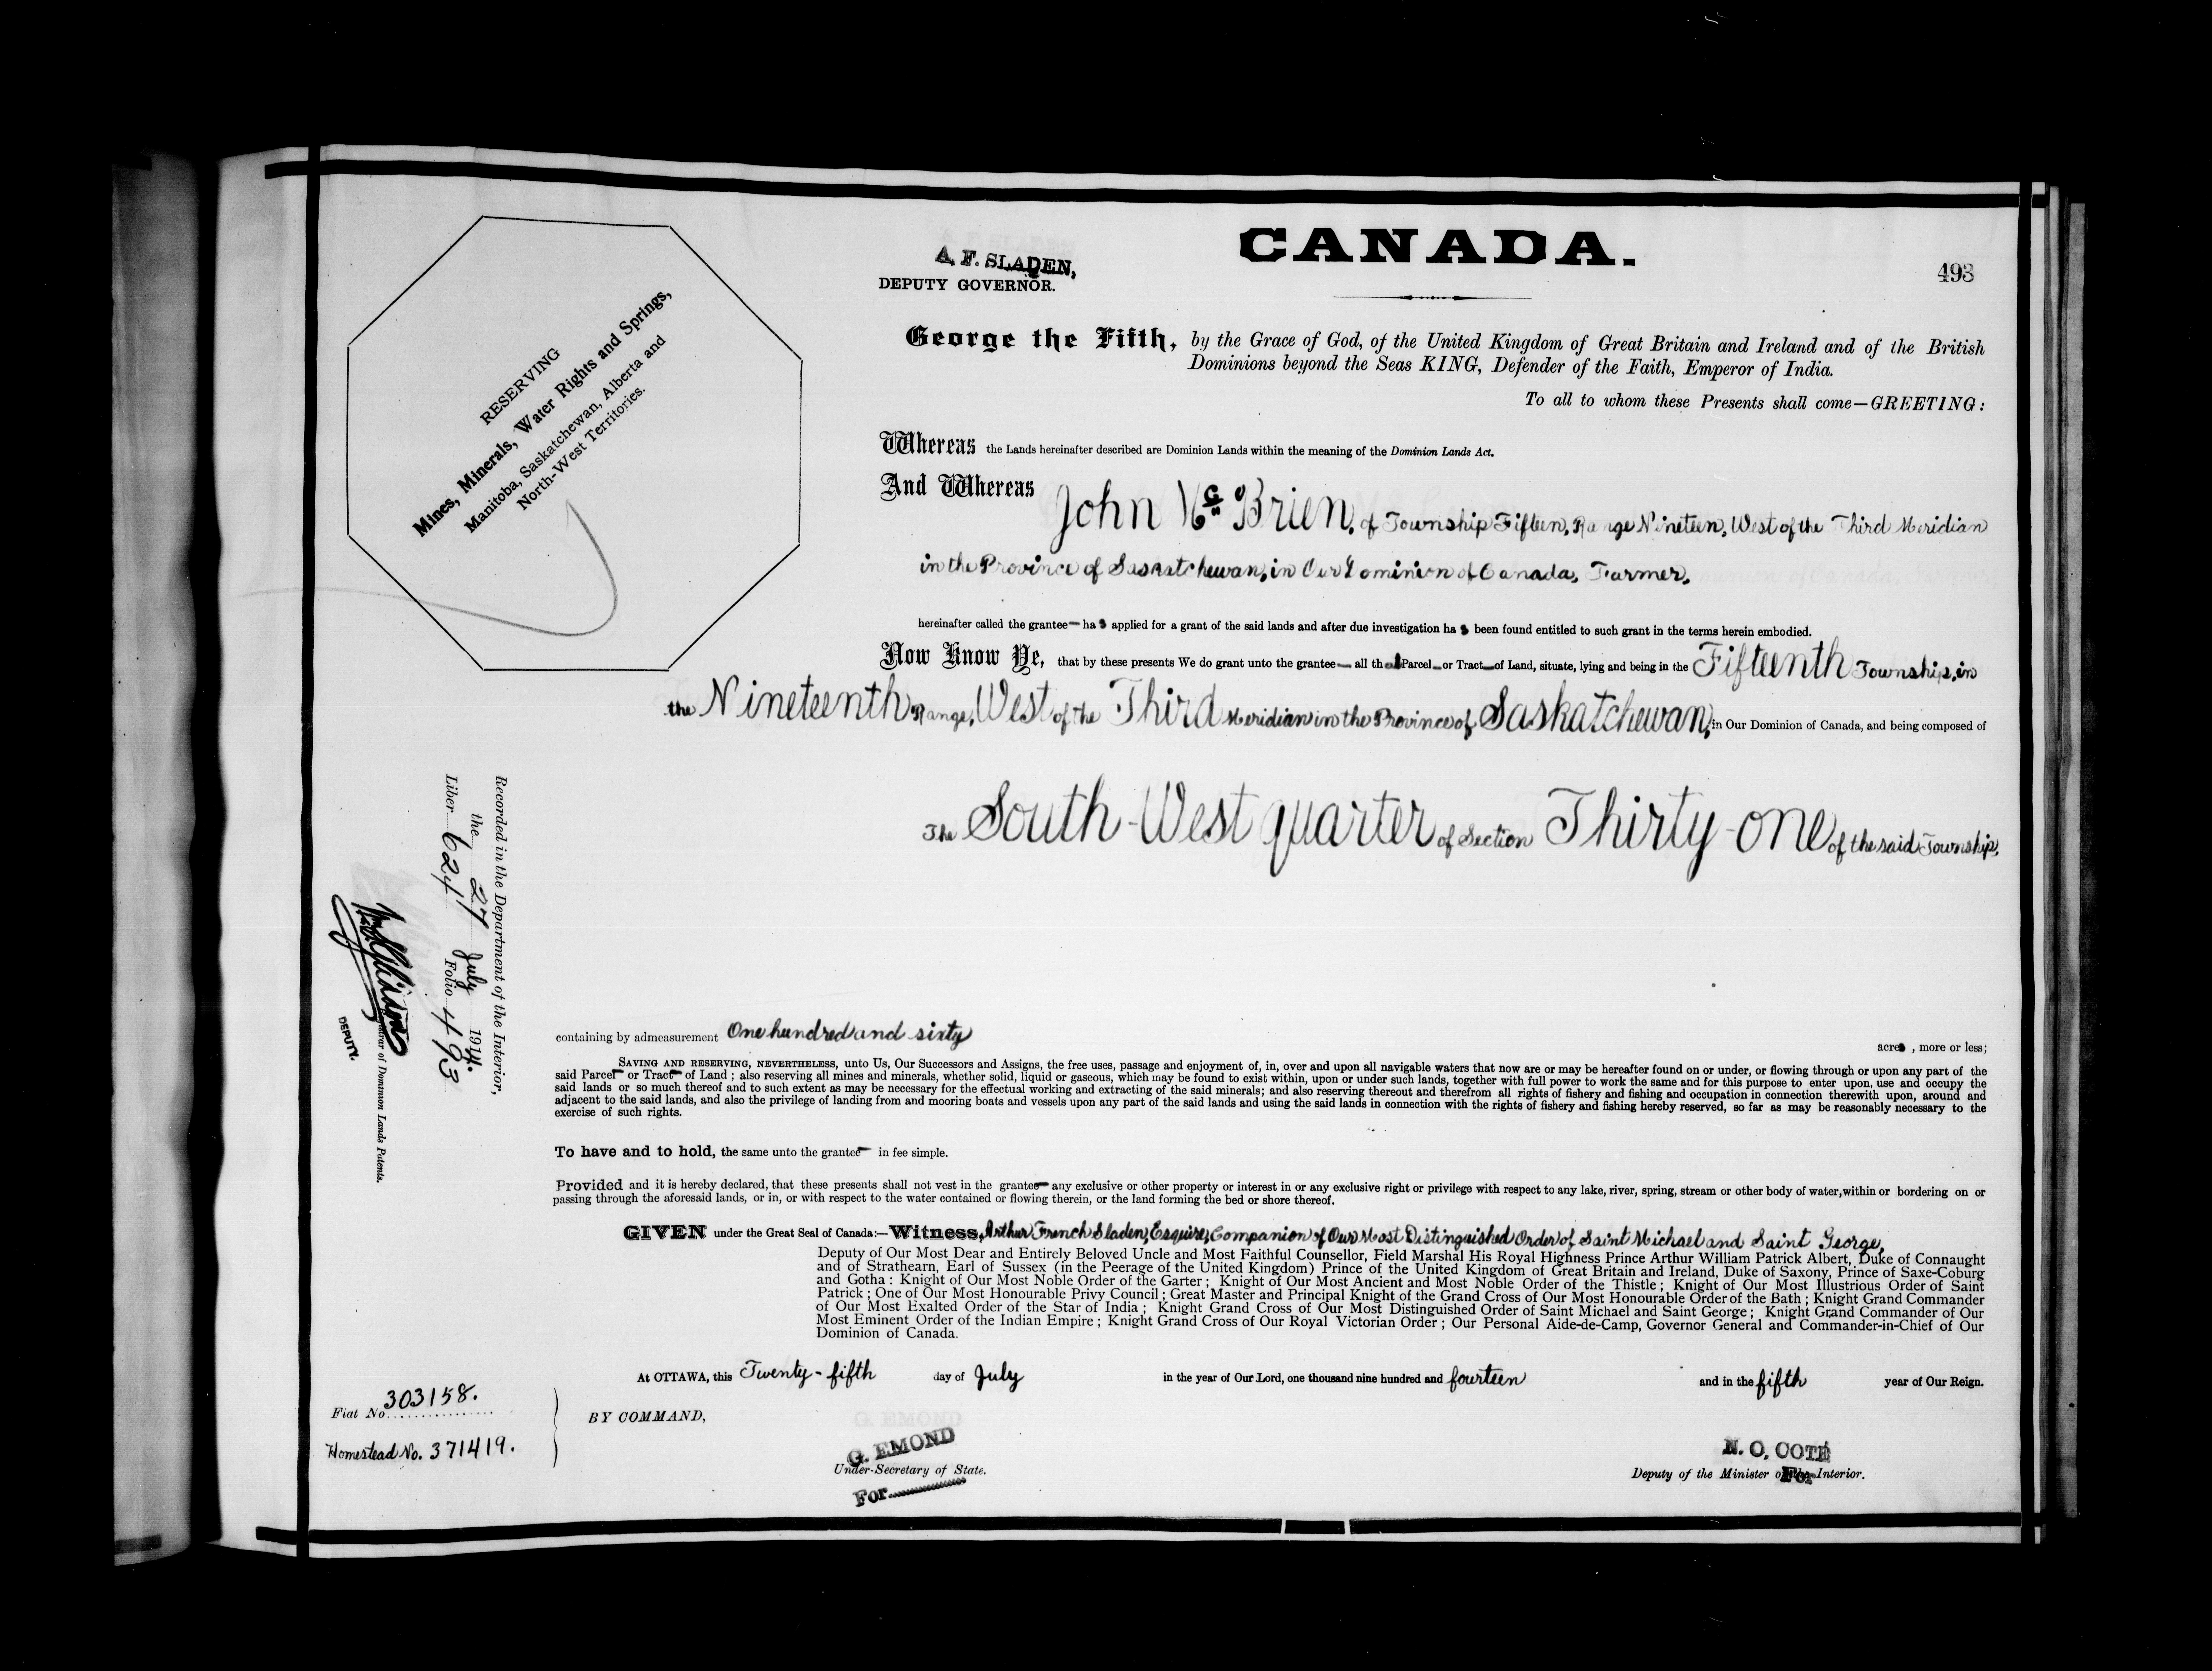 CANADA.
A. F. SLADEN,
DEPUTY GOVERNOR.
493
RESERVING
Mines, Minerals, Water Rights and Springs,
Manitoba, Saskatchewan, Alberta and
North-West Territories.
George the Fifth, by the Grace of God, of the United Kingdom of Great Britain and Ireland and of the British
Dominions beyond the Seas KING, Defender of the Faith, Emperor of India.
To all to whom these Presents shall come—GREETING:
Whereas the Lands hereinafter described are Dominion Lands within the meaning of the Dominion Lands Act.
And Whereas John Mc Brien, of Township Fifteen, Range Nineteen, West of the Third Meridian
in the Province of Saskatchewan, in Our Dominion of Canada, Farmer,
hereinafter called the grantee— has applied for a grant of the said lands and after due investigation has been found entitled to such grant in the terms herein embodied.
Now Know Ye, that by these presents We do grant unto the grantee— all that Parcel— or Tract— of Land, situate, lying and being in the Fifteenth Township, in
the Nineteenth Range, West of the Third Meridian in the Province of Saskatchewan, in Our Dominion of Canada, and being composed of
The South-West quarter of Section Thirty-one of the said Township,
containing by admeasurement One hundred and sixty acres, more or less;
SAVING AND RESERVING, NEVERTHELESS, unto Us, Our Successors and Assigns, the free uses, passage and enjoyment of, in, over and upon all navigable waters that now are or may be hereafter found on or under, or flowing through or upon any part of the
said Parcel— or Tract— of Land; also reserving all mines and minerals, whether solid, liquid or gaseous, which may be found to exist within, upon or under such lands, together with full power to work the same and for this purpose to enter upon, use and occupy the
said lands or so much thereof and to such extent as may be necessary for the effectual working and extracting of the said minerals; and also reserving thereout and therefrom all rights of fishery and fishing and occupation in connection therewith upon, around and
adjacent to the said lands, and also the privilege of landing from and mooring boats and vessels upon any part of the said lands and using the said lands in connection with the rights of fishery and fishing hereby reserved, so far as may be reasonably necessary to the
exercise of such rights.
To have and to hold, the same unto the grantee— in fee simple.
Provided and it is hereby declared, that these presents shall not vest in the grantee— any exclusive or other property or interest in or any exclusive right or privilege with respect to any lake, river, spring, stream or other body of water, within or bordering on or
passing through the aforesaid lands, or in, or with respect to the water contained or flowing therein, or the land forming the bed or shore thereof.
GIVEN under the Great Seal of Canada:—Witness, Arthur French Sladen, Esquire, Companion of Our Most Distinguished Order of Saint Michael and Saint George,
Deputy of Our Most Dear and Entirely Beloved Uncle and Most Faithful Counsellor, Field Marshal His Royal Highness Prince Arthur William Patrick Albert, Duke of Connaught
and of Strathearn, Earl of Sussex (in the Peerage of the United Kingdom) Prince of the United Kingdom of Great Britain and Ireland, Duke of Saxony, Prince of Saxe-Coburg
and Gotha: Knight of Our Most Noble Order of the Garter; Knight of Our Most Ancient and Most Noble Order of the Thistle; Knight of Our Most Illustrious Order of Saint
Patrick; One of Our Most Honourable Privy Council; Great Master and Principal Knight of the Grand Cross of Our Most Honourable Order of the Bath; Knight Grand Commander
of Our Most Exalted Order of the Star of India; Knight Grand Cross of Our Most Distinguished Order of Saint Michael and Saint George; Knight Grand Commander of Our
Most Eminent Order of the Indian Empire; Knight Grand Cross of Our Royal Victorian Order; Our Personal Aide-de-Camp, Governor General and Commander-in-Chief of Our
Dominion of Canada.
At OTTAWA, this Twenty-fifth day of July in the year of Our Lord, one thousand nine hundred and fourteen and in the fifth year of Our Reign.
BY COMMAND,
G. EMOND
Under-Secretary of State.
For
N. O. COTÉ
Deputy of the Minister of the Interior.
For
Fiat No. 303158.
Homestead No. 371419.
Recorded in the Department of the Interior,
the 27 July 1914.
Liber 624 Folio 493
Registrar of Dominion Lands Patents.
DEPUTY.